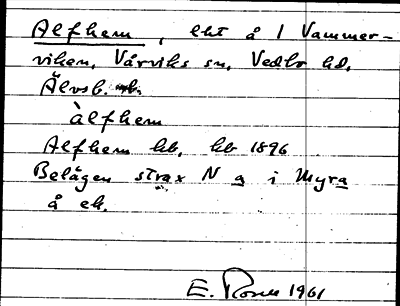 Alfhem, lht å 1 Vammer-
viken, Vårviks sn, Vedbo hd,
Älvsb.
àlfhem
Alfhem hb, hb 1896
Belägen strax N a i Myra
å ek.
E. Rosell 1961